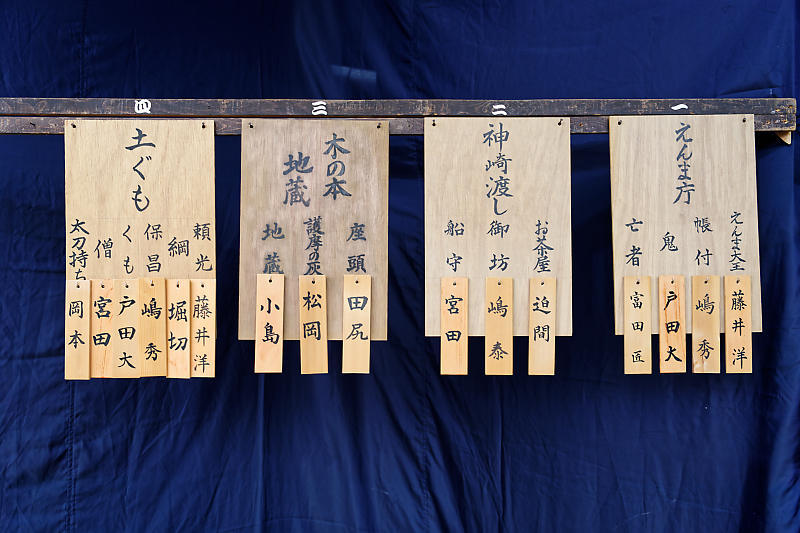 一
えんま庁
えんま大王
藤井洋
帳付
嶋秀
鬼
戸田大
亡者
富田匠
二
神崎渡し
お茶屋
迫間
御坊
嶋泰
船守
宮田
三
木の本
地蔵
座頭
田尻
護摩の灰
松岡
地蔵
小島
四
土ぐも
頼光
藤井洋
綱
堀切
保昌
嶋秀
くも
戸田大
僧
宮田
太刀持ち
岡本